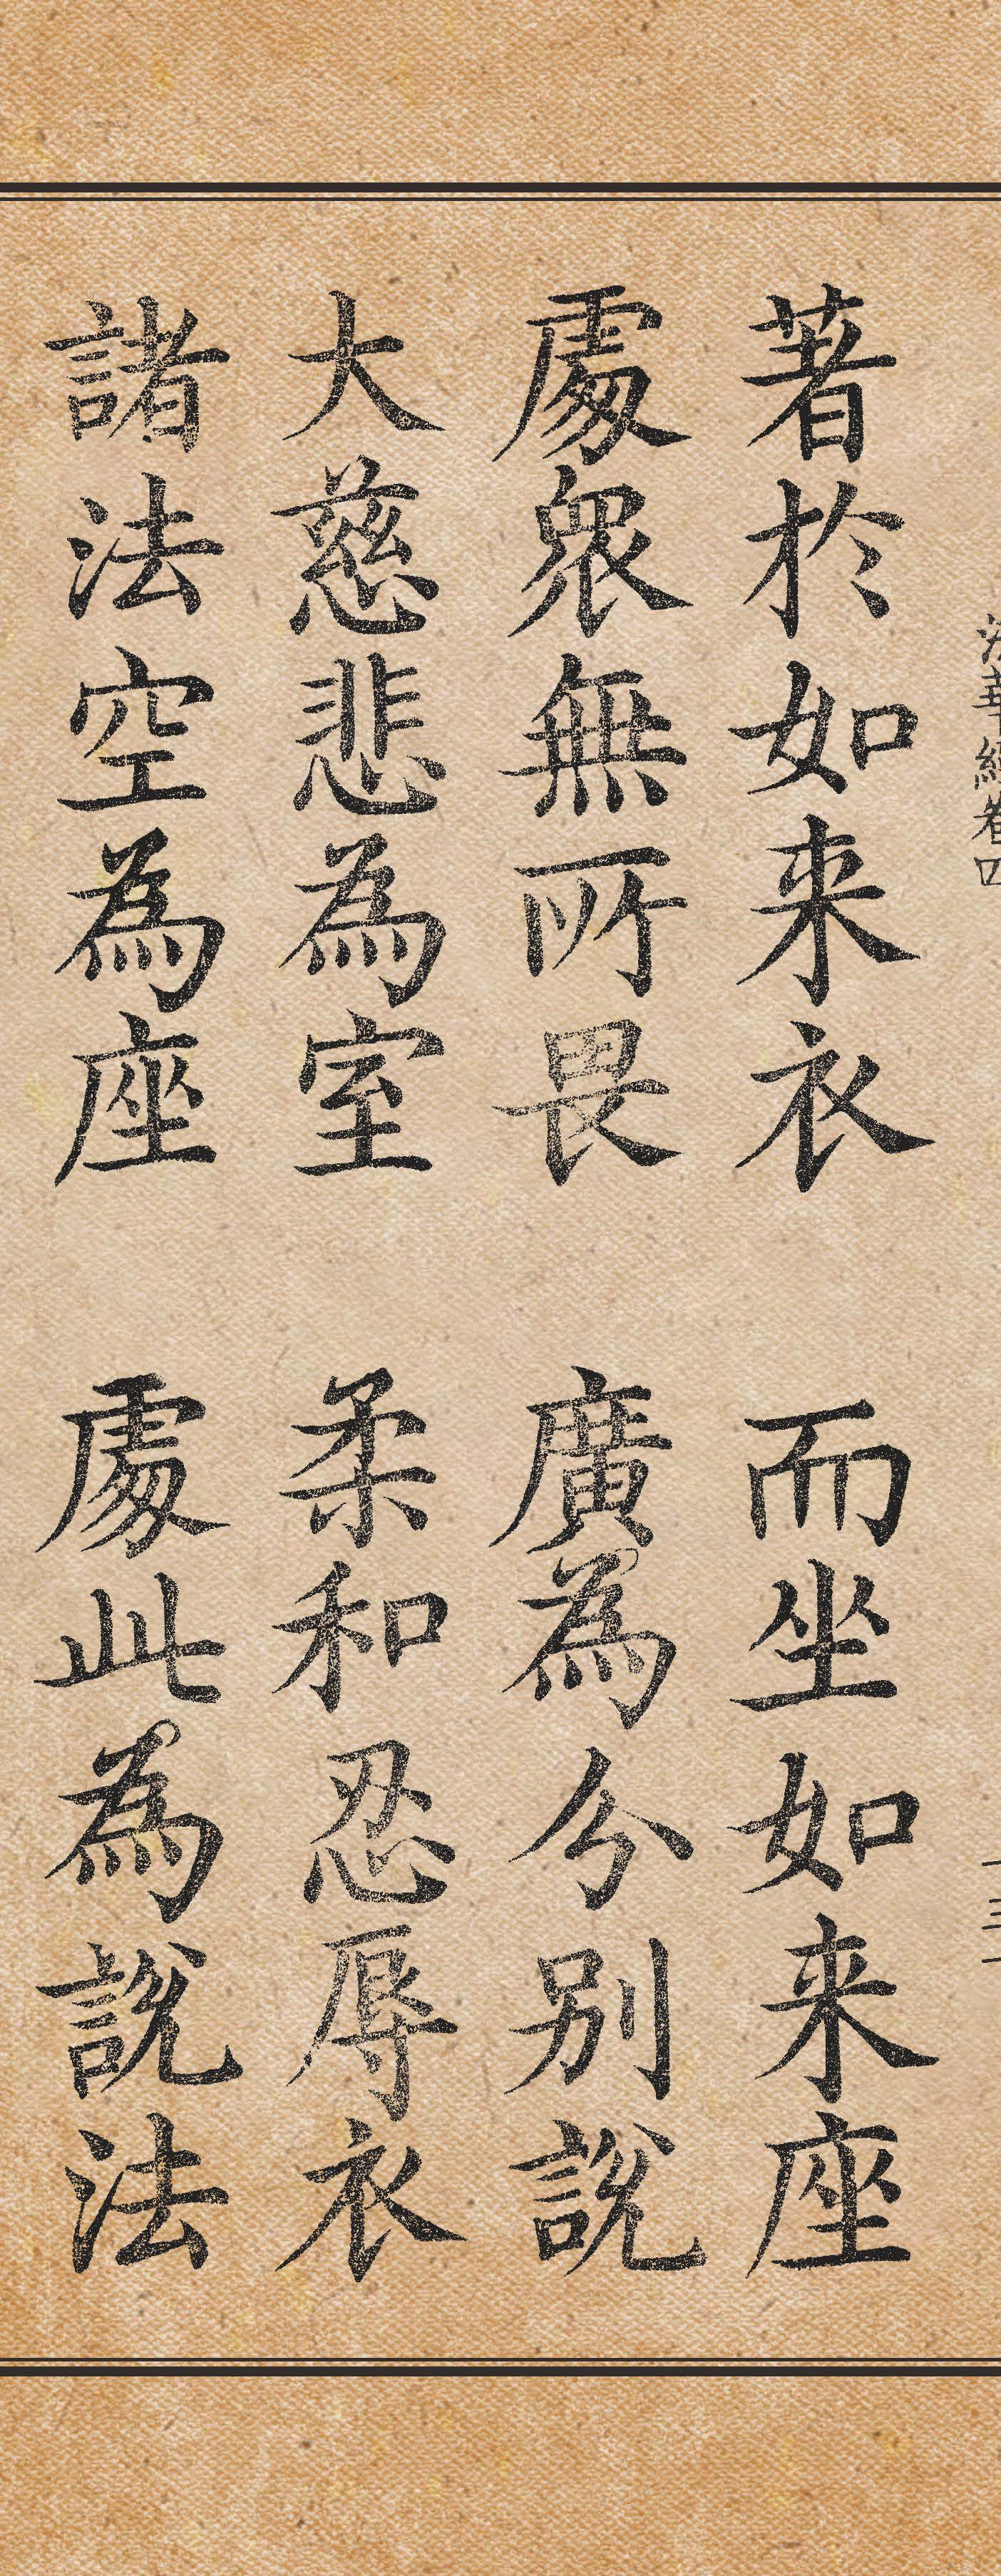 法華經卷四
著於如来衣 而坐如来座
處衆無所畏 廣為分別說
大慈悲為室 柔和忍辱衣
諸法空為座 處此為說法